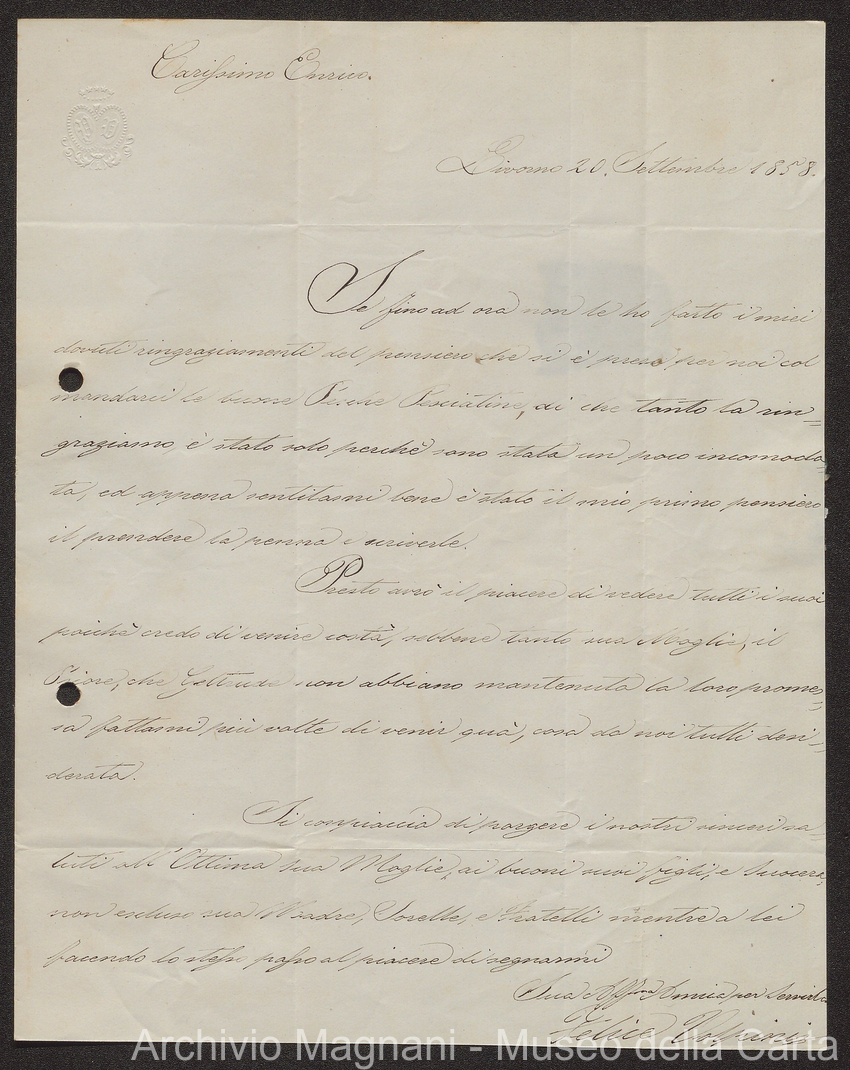 Carissimo Enrico.
Livorno 20. Settembre 1858.
Se fino ad ora non le ho fatto i miei
dovuti ringraziamenti del pensiero che si è preso per noi col
mandarci le buone Pesche Pesciatine, di che tanto la rin=
graziamo, è stato solo perchè sono stata un poco incomoda=
ta, ed appena sentitasmi bene è stato il mio primo pensiero
il prendere la penna e scriverle.
Presto avrò il piacere di vedere tutti i suoi
poichè credo di venire costà, sebbene tanto sua Moglie, il
Priore, che Geltrude non abbiano mantenuta la loro promes=
sa fattami più volte di venir quà, cosa da noi tutti desi=
derata.
Si compiaccia di porgere i nostri sinceri sa=
luti all'Ottima sua Moglie, ai buoni suoi figli, e Suocera,
non escluso sua Madre, Sorelle, e Fratelli mentre a lei
facendo lo stesso passo al piacere di segnarmi
Sua Aff.ma Amica per Servirla
Archivio Magnani - Museo della Carta